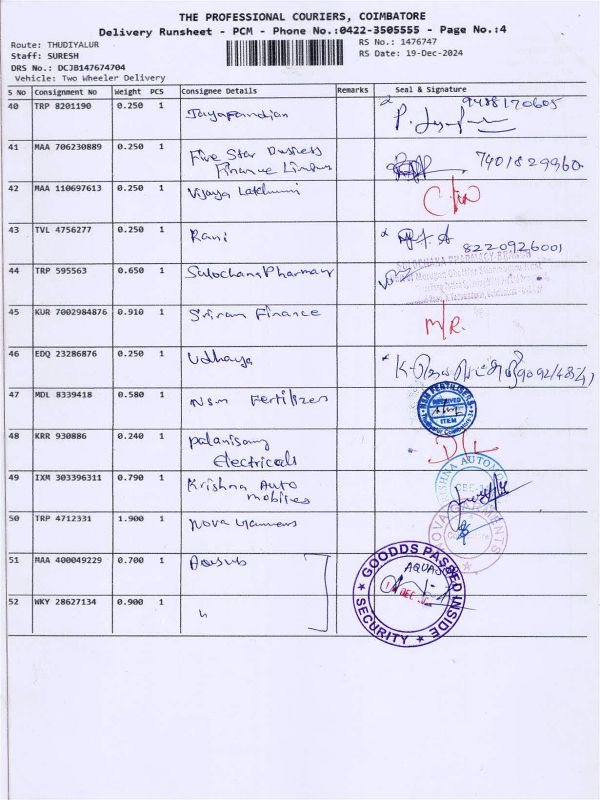 THE PROFESSIONAL COURIERS, COIMBATORE
Delivery Runsheet - PCM - Phone No.:0422-3505555 - Page No.:4
Route: THUDIYALUR
Staff: SURESH
DRS No.: DCJB147674704
Vehicle: Two Wheeler Delivery
RS No.: 1476747
RS Date: 19-Dec-2024
S No Consignment No Weight PCS Consignee Details Remarks Seal & Signature
40 TRP 8201190 0.250 1 Jayapandian 9488170605
41 MAA 706230889 0.250 1 Five Star Business
Finance Limited 7401829960
42 MAA 110697613 0.250 1 Vijaya Lakshmi
43 TVL 4756277 0.250 1 Rani 8220926001
44 TRP 595563 0.650 1 Sulochana Pharmacy SULOCHANA PHARMACY
45 KUR 7002984876 0.910 1 Sriram Finance M/R.
46 EDQ 23286876 0.250 1 Udhaya
47 MDL 8339418 0.580 1 NSM Fertilizers NSM FERTILIZERS
RECEIVED
ITEM
48 KRR 930886 0.240 1 Palanisamy
Electricals D/L
49 IXM 303396311 0.790 1 Krishna Auto
mobiles
50 TRP 4712331 1.900 1 Nova Garments NOVA GARMENTS
51 MAA 400049229 0.700 1 Aquasub GOODDS PASSED INSIDE
AQUASUB
SECURITY
52 WKY 28627134 0.900 1 "